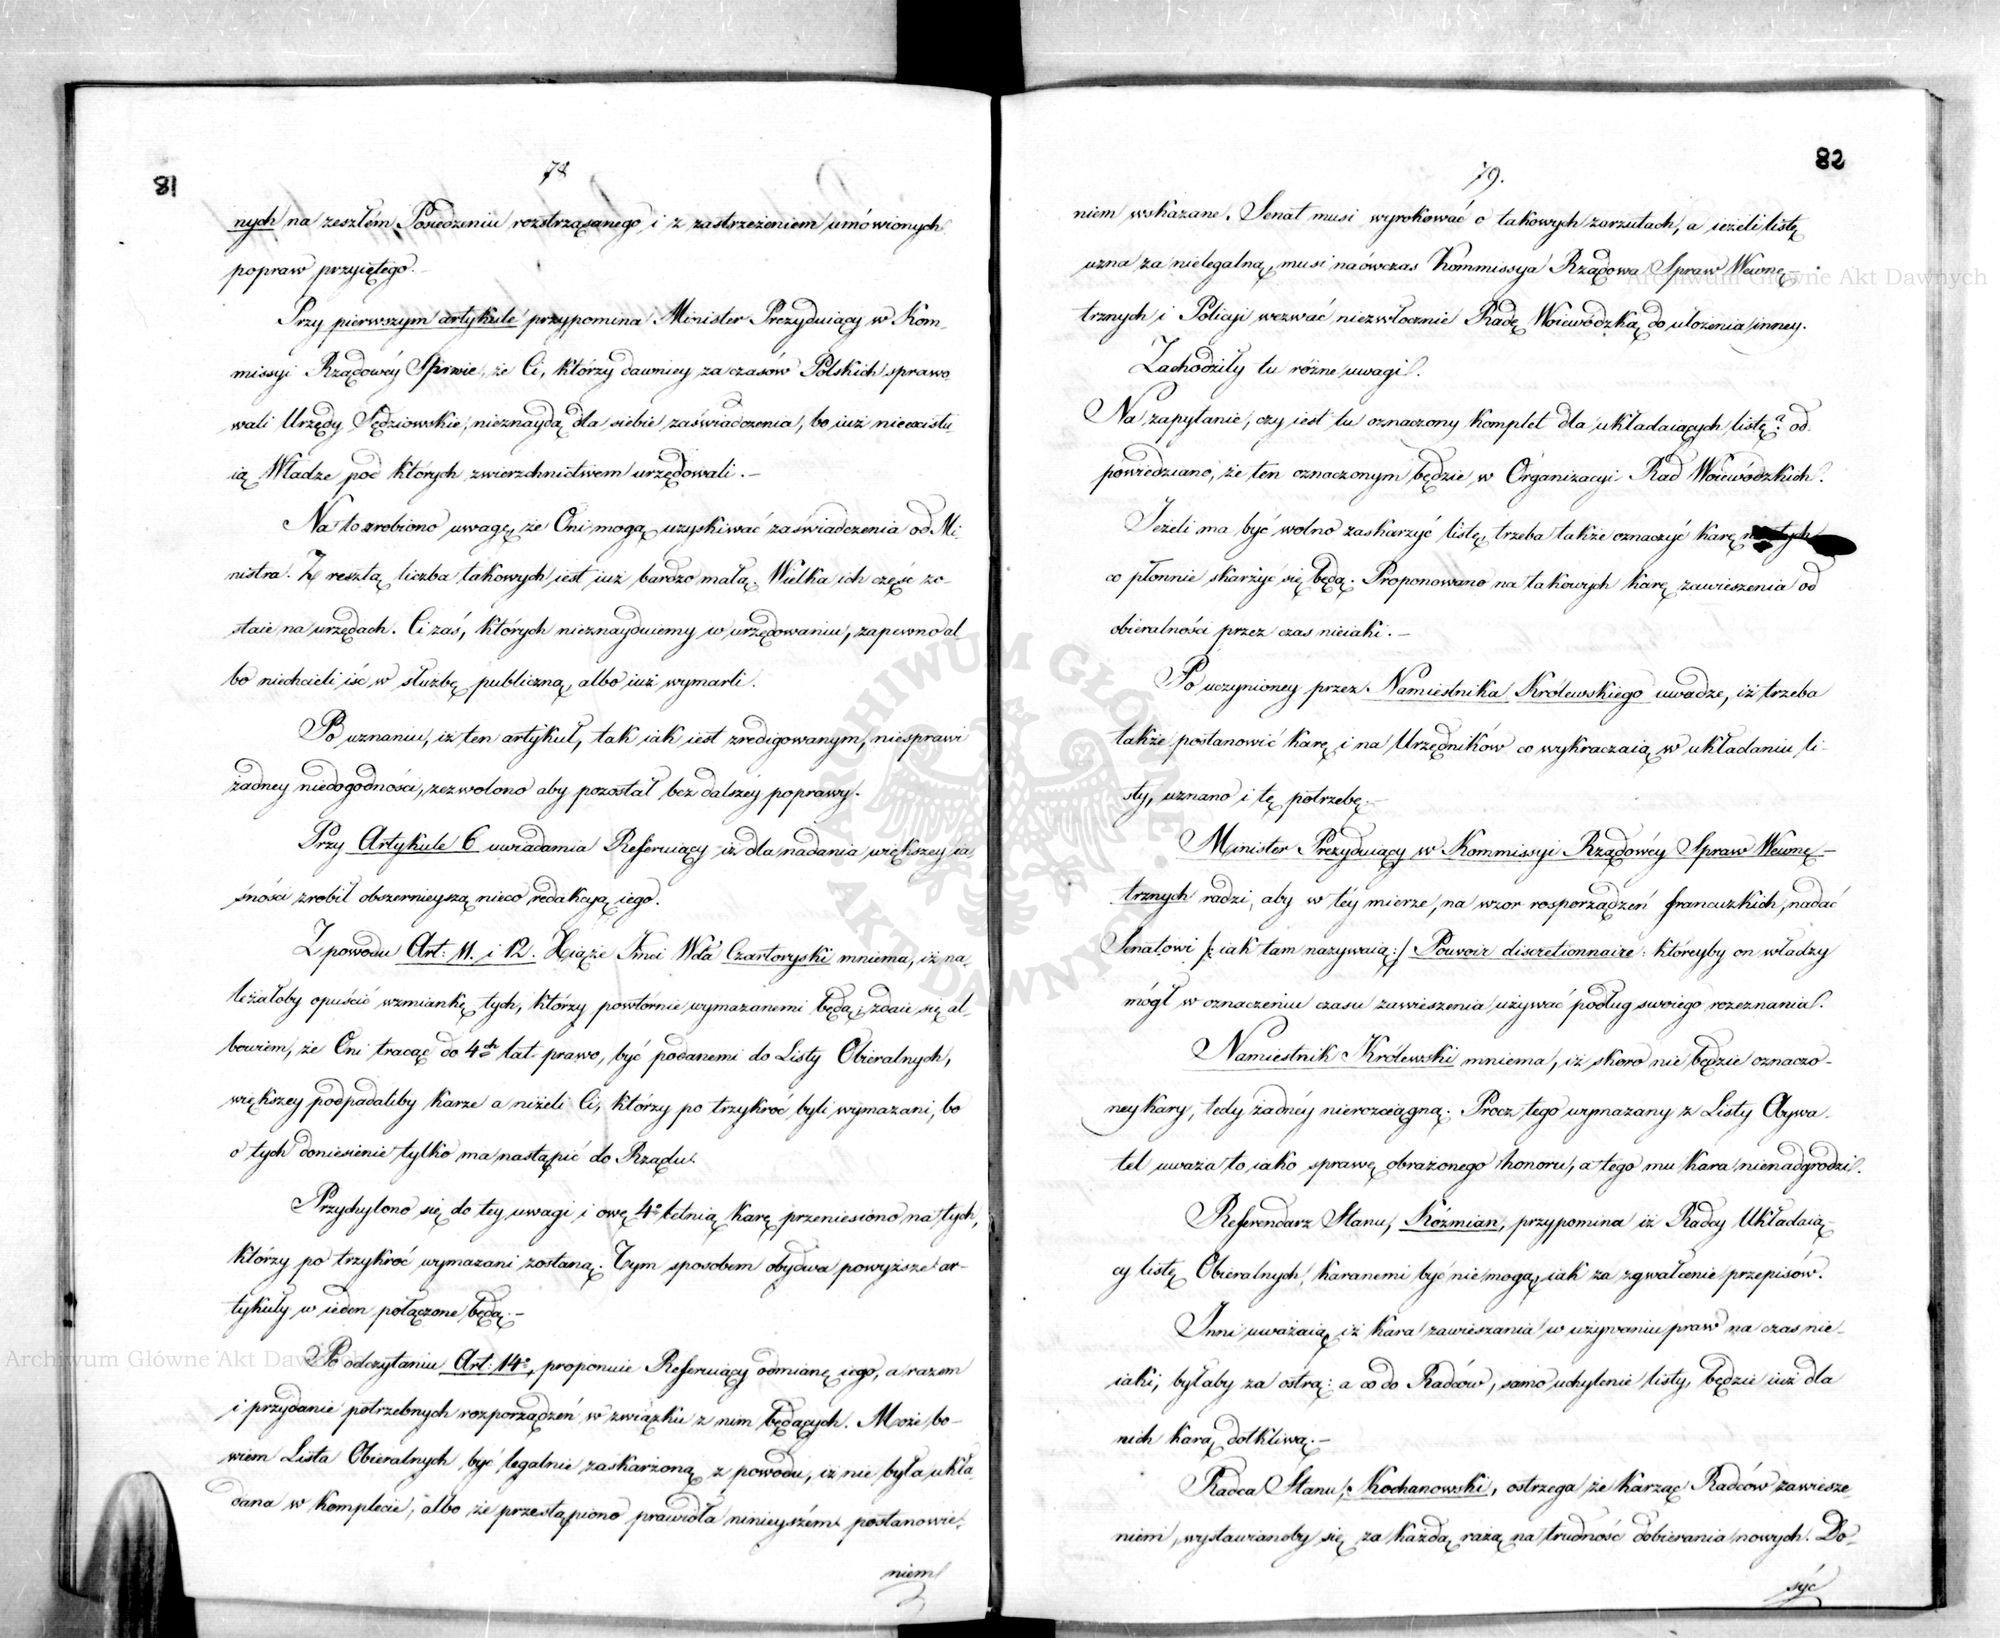 81
78
nych na zeszłém Posiedzeniu rozstrząsanego i z zastrzeżeniem umówionych
popraw przyiętego.
Przy pierwszym artykule przypomina Minister Prezyduiący w Kom-
missyi Rządowéy Spirwie, że Ci, którzy dawniey za czasów Polskich sprawo
wali Urzędy Sędziowskie, nieznaydą dla siebie zaświadczenia, bo iuż nieexistu-
ią Władze pod których zwierzchnictwem urzędowali.-
Na to zrobiono uwagę, że Oni mogą uzyskiwać zaświadczenia od Mi-
nistra. Z resztą liczba takowych iest iuż bardzo mała. Wielka ich część zo-
staie na urzędach. Ci zaś, których nieznayduiemy w urzędowaniu, zapewno al-
bo niechcieli iść w służbę publiczną, albo iuż wymarli.
Po uznaniu, iż ten artykuł, tak iak iest zredigowanym, niesprawi
żadney niedogodności, zezwolono aby pozostał bez dalszéy poprawy.
Przy Artykule 6 uwiadamia Referuiący iż dla nadania większey ia-
śności zrobił obszernieyszą nieco redakcyą iego.
Z powodu Art: 11. i 12. Xiąże Jmci Wda Czartoryski mniema, iż na-
leżałoby opuścić wzmiankę tych, którzy powtórnie wymazanemi będą; zdaie się al-
bowiem, że Oni tracąc do 4ch lat prawo, być podanemi do Listy Obieralnych,
większey podpadaliby karze a niżeli Ci, którzy po trzykroć byli wymazani, bo
o tych doniesienie tylko ma nastąpić do Rządu.
Przychylono się do tey uwagi i owę 4o letnią karę przeniesiono na tych,
którzy po trzykroć wymazani zostaną. Tym sposobem obydwa powyższe ar-
tykuły w ieden połączone będą.-
Po odczytaniu Art: 14o, proponuie Referuiący odmianę iego, a razem
i przydanie potrzebnych rozporządzeń w związku z nim będących. Może bo-
wiem Lista Obieralnych być legalnie zaskarżoną z powodu, iż nie była ukła-
dana w komplecie, albo że przestąpiono prawidła ninieyszém postanowie-
niem
82
79.
niem wskazane. Senat musi wyrokować o takowych zarzutach, a ieżeli listę
uzna za nielegalną, musi naówczas Kommissya Rządowa Spraw Wewnę-
trznych i Policyi wezwać niezwłocznie Radę Woiewódzką do ułożenia inney.
Zachodziły tu różne uwagi.
Na zapytanie, czy iest tu oznaczony komplet dla układaiących listę? od-
powiedziano, że ten oznaczonym będzie w Organizacyi Rad Woiewódzkich.
Jeżeli ma być wolno zaskarżyć listę, trzeba także oznaczyć karę na tych
co płonnie skarżyć się będą. Proponowano na takowych karę zawieszenia od
obieralności przez czas nieiaki.-
Po uczynioney przez Namiestnika Królewskiego uwadze, iż trzeba
także postanowić karę i na Urzędników co wykraczaią w układaniu li-
sty, uznano i tę potrzebę.-
Minister Prezyduiący w Kommissyi Rządowéy Spraw Wewnę-
trznych radzi, aby w téy mierze, na wzor rosporządzeń francuzkich, nadać
Senatowi /: iak tam nazywaią :/ Pouvoir discretionnaire: któreyby on władzy
mógł w oznaczeniu czasu zawieszenia używać podług swoiego rozeznania.
Namiestnik Królewski mniema, iż skoro nie będzie oznaczo-
ney kary, tedy żadnéy nierozciągną. Procz tego wymazany z Listy Obywa-
tel uważa to iako sprawę obrażonego honoru, a tego mu kara nienadgrodzi.
Referendarz Stanu, Kóźmian, przypomina iż Radcy Układaią-
cy listę Obieralnych karanemi być nie mogą, iak za zgwałcenie przepisów.
Inni uważaią, iż kara zawieszania w używaniu praw na czas nie-
iaki, byłaby za ostrą: a co do Radców, samo uchylenie listy, będzie iuż dla
nich karą dotkliwą.-
Radca Stanu, Kochanowski, ostrzega że karząc Radców zawiesze-
niem, wystawianoby się za każdą rażą na trudność dobierania nowych. Do-
syć
ARCHIWUM GŁÓWNE AKT DAWNYCH
Archiwum Główne Akt Dawnych
Archiwum Główne Akt Dawnych